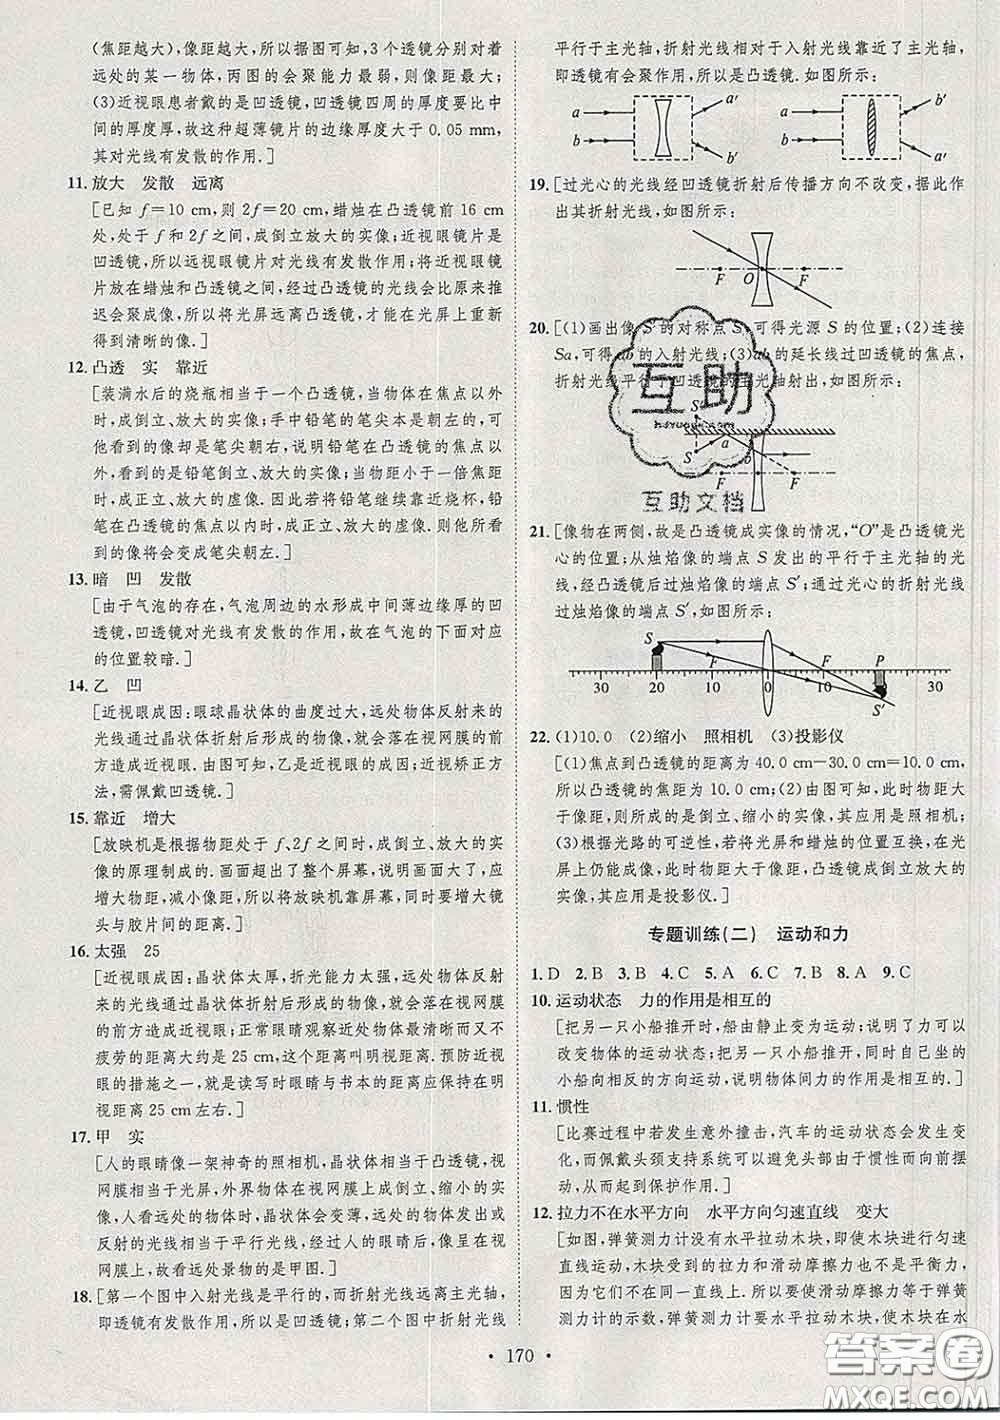 (焦距越大)，像距越大，所以据图可知，3个透镜分别对着
远处的某一物体，丙图的会聚能力最弱，则像距最大；
(3)近视眼患者戴的是凹透镜，凹透镜四周的厚度要比中
间的厚度厚，故这种超薄镜片的边缘厚度大于0.05 mm，
其对光线有发散的作用.]
11. 放大 发散 远离
[已知 f=10 cm，则 2f=20 cm，蜡烛在凸透镜前 16 cm
处，处于 f 和 2f 之间，成倒立放大的实像；近视眼镜片是
凹透镜，所以近视眼镜片对光线有发散作用；将近视眼镜
片放在蜡烛和凸透镜之间，经过凸透镜的光线会比原来推
迟会聚成像，所以将光屏远离凸透镜，才能在光屏上重新
得到清晰的像.]
12. 凸透 实 靠近
[装满水后的烧瓶相当于一个凸透镜，当物体在焦点以外
时，成倒立、放大的实像；手中铅笔的笔尖本是朝左的，可
他看到的像却是笔尖朝右，说明铅笔在凸透镜的焦点以
外，看到的是铅笔倒立、放大的实像；当物距小于一倍焦距
时，成正立、放大的虚像。因此若将铅笔继续靠近烧杯，铅
笔在凸透镜的焦点以内时，成正立、放大的虚像.则他所看
到的像将会变成笔尖朝左.]
13. 暗 凹 发散
[由于气泡的存在，气泡周边的水形成中间薄边缘厚的凹
透镜，凹透镜对光线有发散的作用，故在气泡的下面对应
的位置较暗.]
14. 乙 凹
[近视眼成因：眼球晶状体的曲度过大，远处物体反射来的
光线通过晶状体折射后形成的物像，就会落在视网膜的前
方造成近视眼。因此，乙是近视眼的成因；近视矫正方
法，需佩戴凹透镜。]
15. 靠近 增大
[放映机是根据物距处于 f、2f 之间时，成倒立、放大的实像
的原理制成的.画面超出了整个屏幕，说明像过大，应
增大物距，减小像距，所以将放映机靠近屏幕，同时要增大镜
头与胶片间的距离.]
16. 太强 25
[近视眼成因：晶状体太厚，折光能力太强，远处物体反射
来的光线通过晶状体折射后形成的物像，就会落在视网膜
的前方造成近视眼；正常眼睛观察近处物体最清晰而又不
疲劳的距离大约是 25 cm，这个距离叫明视距离。预防近视
眼的措施之一，就是读写时眼睛与书本的距离应保持在明
视距离 25 cm 左右.]
17. 甲 实
[人的眼睛像一架神奇的照相机，晶状体相当于凸透镜，视
网膜相当于光屏，外界物体在视网膜上成倒立、缩小的实
像，人看远处的物体时，远处的物体发出或
反射的光线相当于平行光线，经过人的眼睛后，像呈在视
网膜上，故看远处景物的是甲图.]
18. [第一个图中入射光线是平行的，而折射光线远离主光轴，
即透镜有发散作用，所以是凹透镜；第二个图中折射光线
平行于主光轴，折射光线相对于入射光线靠近了主光轴，
即透镜有会聚作用，所以是凸透镜.如图所示：
a a′ b b′ a b b′ a′
19. [过光心的光线经凹透镜折射后传播方向不改变，据此作
出其折射光线，如图所示：
F O F
20. [(1)画出像 S′的对称点 S，可得光源 S 的位置；(2)连接
Sa，可得 ab 的入射光线；(3)ab 的延长线过凹透镜的焦点，
折射光线平行 凹透镜的主光轴射出，如图所示：
S′ S a b F
互助
互助文档
21. [像物在两侧，故是凸透镜成实像的情况，“O”是凸透镜光
心的位置；从烛焰像的端点 S 发出的平行于主光轴的光
线，经凸透镜后过烛焰像的端点 S′；通过光心的折射光线
过烛焰像的端点 S′，如图所示：
S F F P S′
30 20 10 0 10 20 30
22. (1)10.0 (2)缩小 照相机 (3)投影仪
[(1)焦点到凸透镜的距离为 40.0 cm－30.0 cm＝10.0 cm，
所以凸透镜的焦距为 10.0 cm；(2)由图可知，此时物距大
于像距，则所成的像是倒立、缩小的实像，其应用是照相机；
(3)根据光路的可逆性，若将光屏和蜡烛的位置互换，在光
屏上仍能成像，此时物距大于像距，凸透镜成倒立放大的
实像，其应用是投影仪.]
专题训练(二) 运动和力
1. D 2. B 3. C 4. C 5. A 6. C 7. B 8. A 9. C
10. 运动状态 力的作用是相互的
[把另一只小船推开时，船由静止变为运动；说明了力可以
改变物体的运动状态；把另一只小船推开，同时自己所在
小船向相反的方向运动，说明物体间力的作用是相互的.]
11. 惯性
[比赛过程中若发生意外撞击，汽车的运动状态会发生变
化，而佩戴头颈支持系统可以避免头部由于惯性而向前摆
动，从而起到保护作用.]
12. 拉力不在水平方向 水平方向匀速直线 变大
[如图，弹簧测力计没有水平拉动木块，即使木块进行匀速
直线运动，木块受到的拉力和滑动摩擦力也不是平衡力，
因为它们不在同一直线上。所以要使滑动摩擦力等于弹簧
测力计的示数，弹簧测力计要水平拉动木块，使木块在水
170
答案圈
MXQE.COM